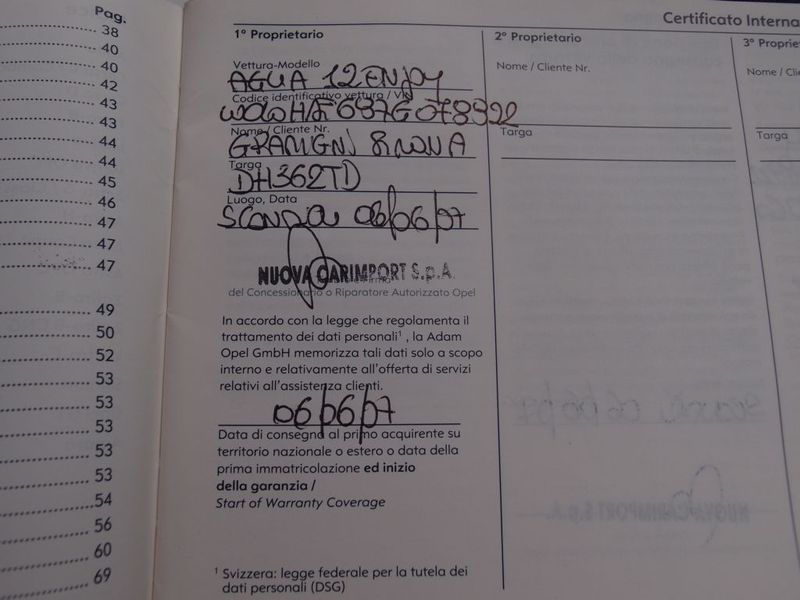 Pag.
38
40
40
42
43
43
44
44
45
46
47
47
47
49
50
52
53
53
53
53
53
54
56
60
69
Certificato Interna
1º Proprietario
Vettura-Modello
AGUA 12 ENJOY
Codice identificativo vettura / VIN
Nome / Cliente Nr.
GRAMIGNI
Targa
DH362TD
Luogo, Data
06/06/07
NUOVA CARIMPORT S.p.A.
del Concessionario o Riparatore Autorizzato Opel
In accordo con la legge che regolamenta il
trattamento dei dati personali¹ , la Adam
Opel GmbH memorizza tali dati solo a scopo
interno e relativamente all'offerta di servizi
relativi all'assistenza clienti.
06/06/07
Data di consegna al primo acquirente su
territorio nazionale o estero o data della
prima immatricolazione ed inizio
della garanzia /
Start of Warranty Coverage
¹ Svizzera: legge federale per la tutela dei
dati personali (DSG)
2º Proprietario
Nome / Cliente Nr.
Targa
3º Proprie
Nome / Clien
Targa